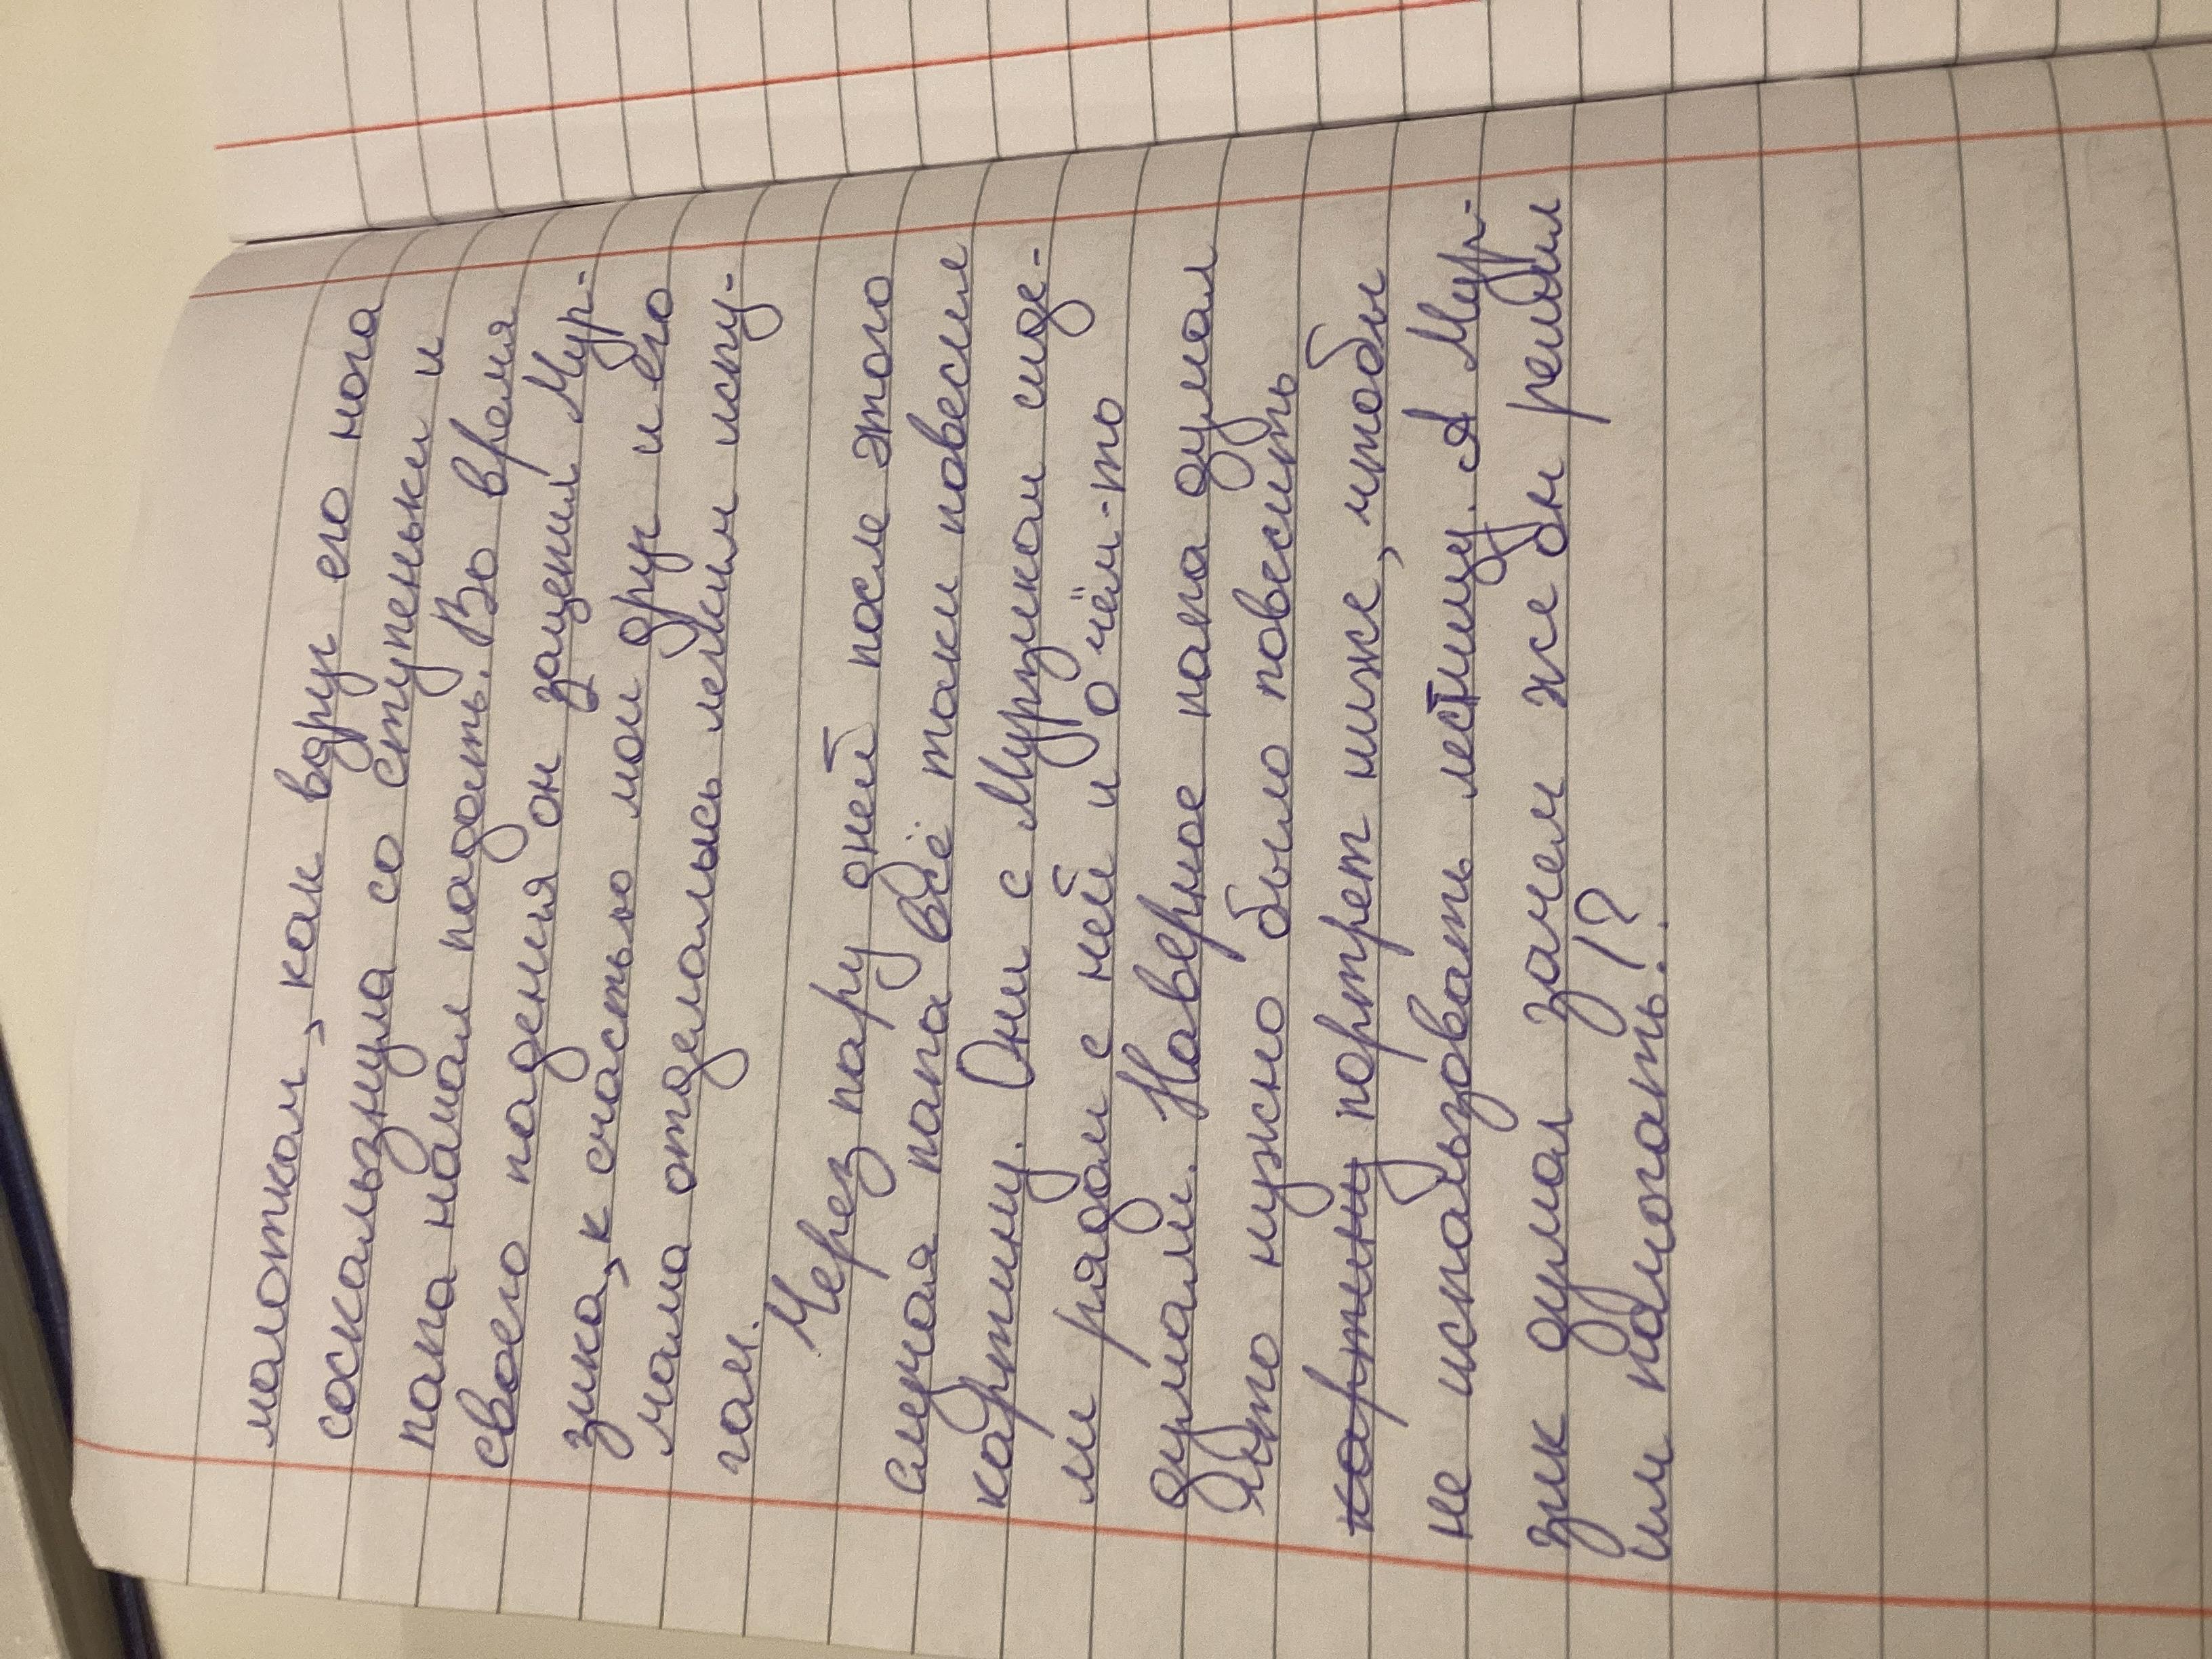 молотком, как вдруг его нога
соскользнула со ступеньки и
папа начал падать. Во время
своего падения он зацепил Мур-
зика, к счастью мой друг и его
мама отделались легким испу-
гом.
Через пару дней после этого
случая папа всё таки повесил
картину. Они с Мурзиком сиде-
ли рядом с ней и о чём-то
думали. Наверное папа думал
что нужно было повесить
картину портрет ниже, чтобы
не использовать лестницу. А Мур-
зик думал зачем же он решил
им помогать!?